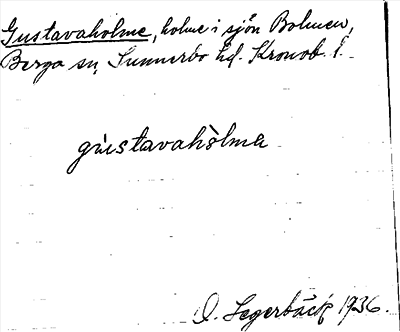 Gustavaholme, holme i sjön Bolmen,
Berga sn, Sunnerbo hd. Kronob. l.
gùstavahòlma
O. Segerbäck 1936.